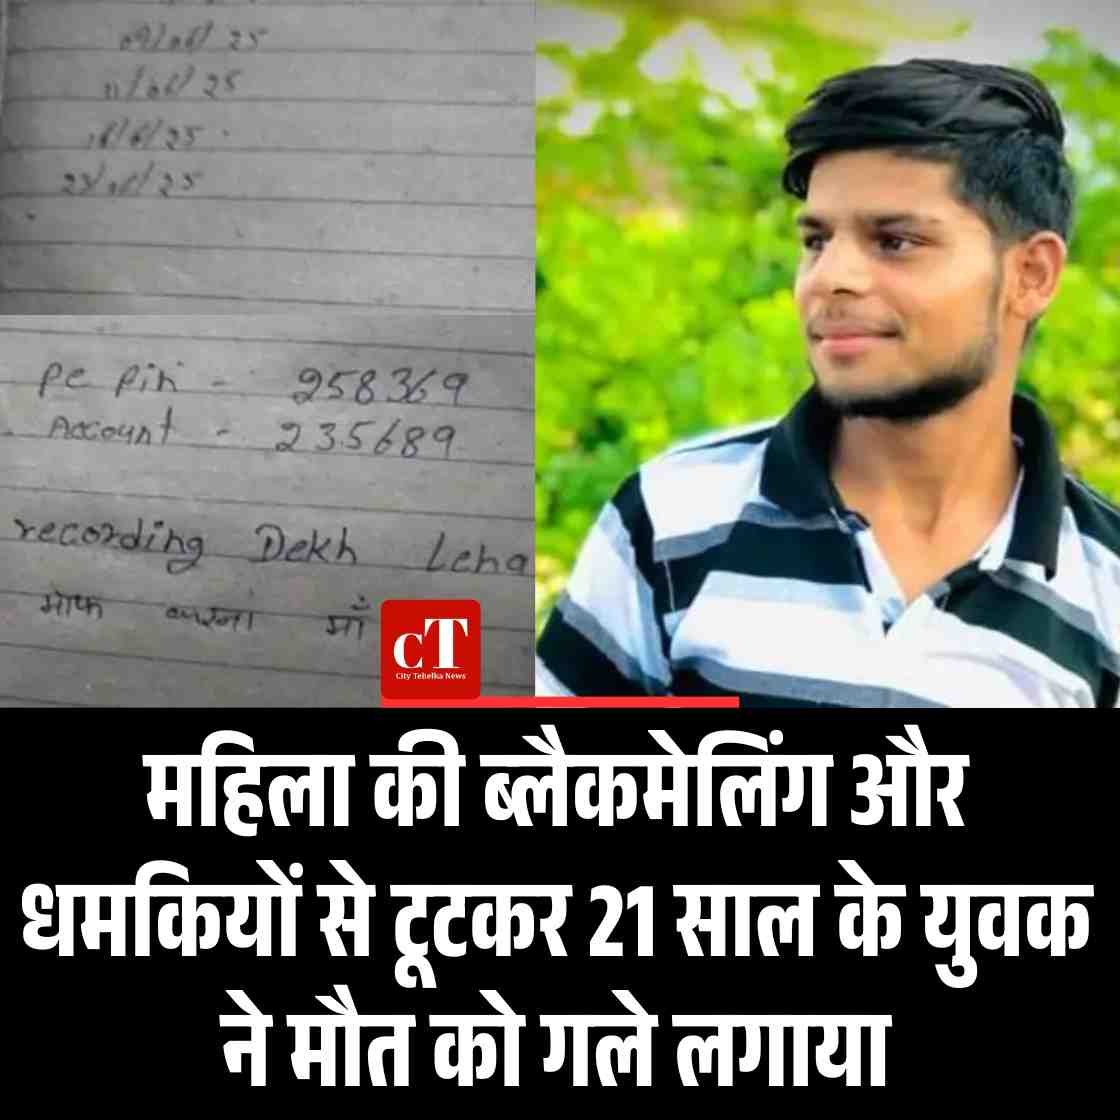 09/06/25
11/06/25
16/6/25
23/06/25
Pe Pin - 258369
Account - 235689
recording Dekh Lena
माफ करना माँ
CT
City Tehelka News
महिला की ब्लैकमेलिंग और
धमकियों से टूटकर 21 साल के युवक
ने मौत को गले लगाया